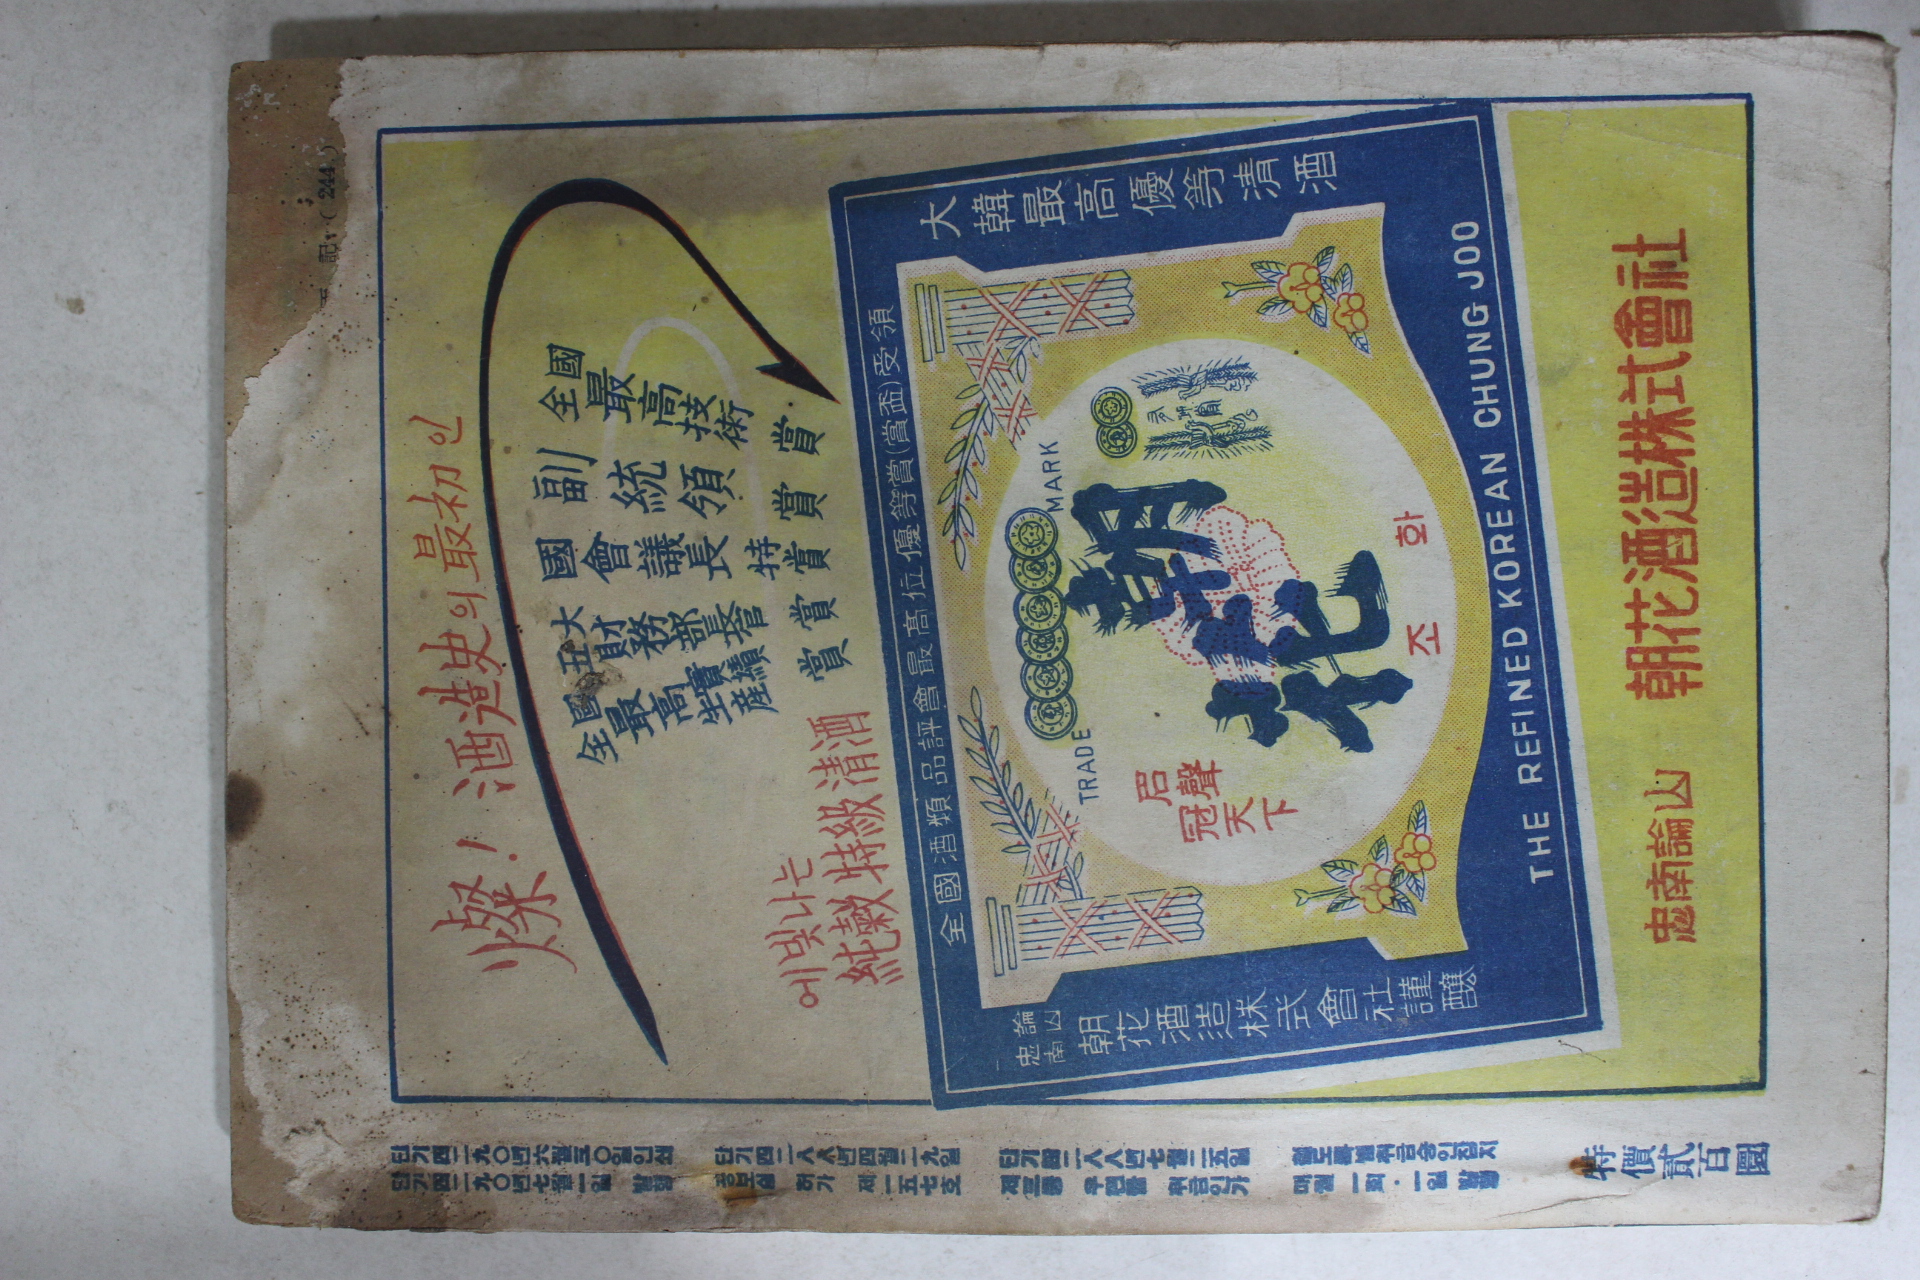 燦! 酒造史의 最初인
全國最高技術賞
副統領賞
國會議長特賞
大財務部長官賞
全國最高生産實績賞
에빛나는
純穀特級淸酒
全國酒類品評會最高位優等賞(賞盃)受領
大韓最高優等淸酒
TRADE MARK
朝花
조화
名聲
冠天下
THE REFINED KOREAN CHUNG JOO
忠南論山
朝花酒造株式會社謹釀
忠南論山 朝花酒造株式會社
단기四二九〇년六월三〇일인쇄
단기四二九〇년七월一일 발행
단기四二八八년四월二九일
공보실 허가 제一五七호
단기四二八八년七월二五일
제三종 우편물 취급인가
철도특별취급승인잡지
매월 一회·一일 발행
特價貳百圜
(244)